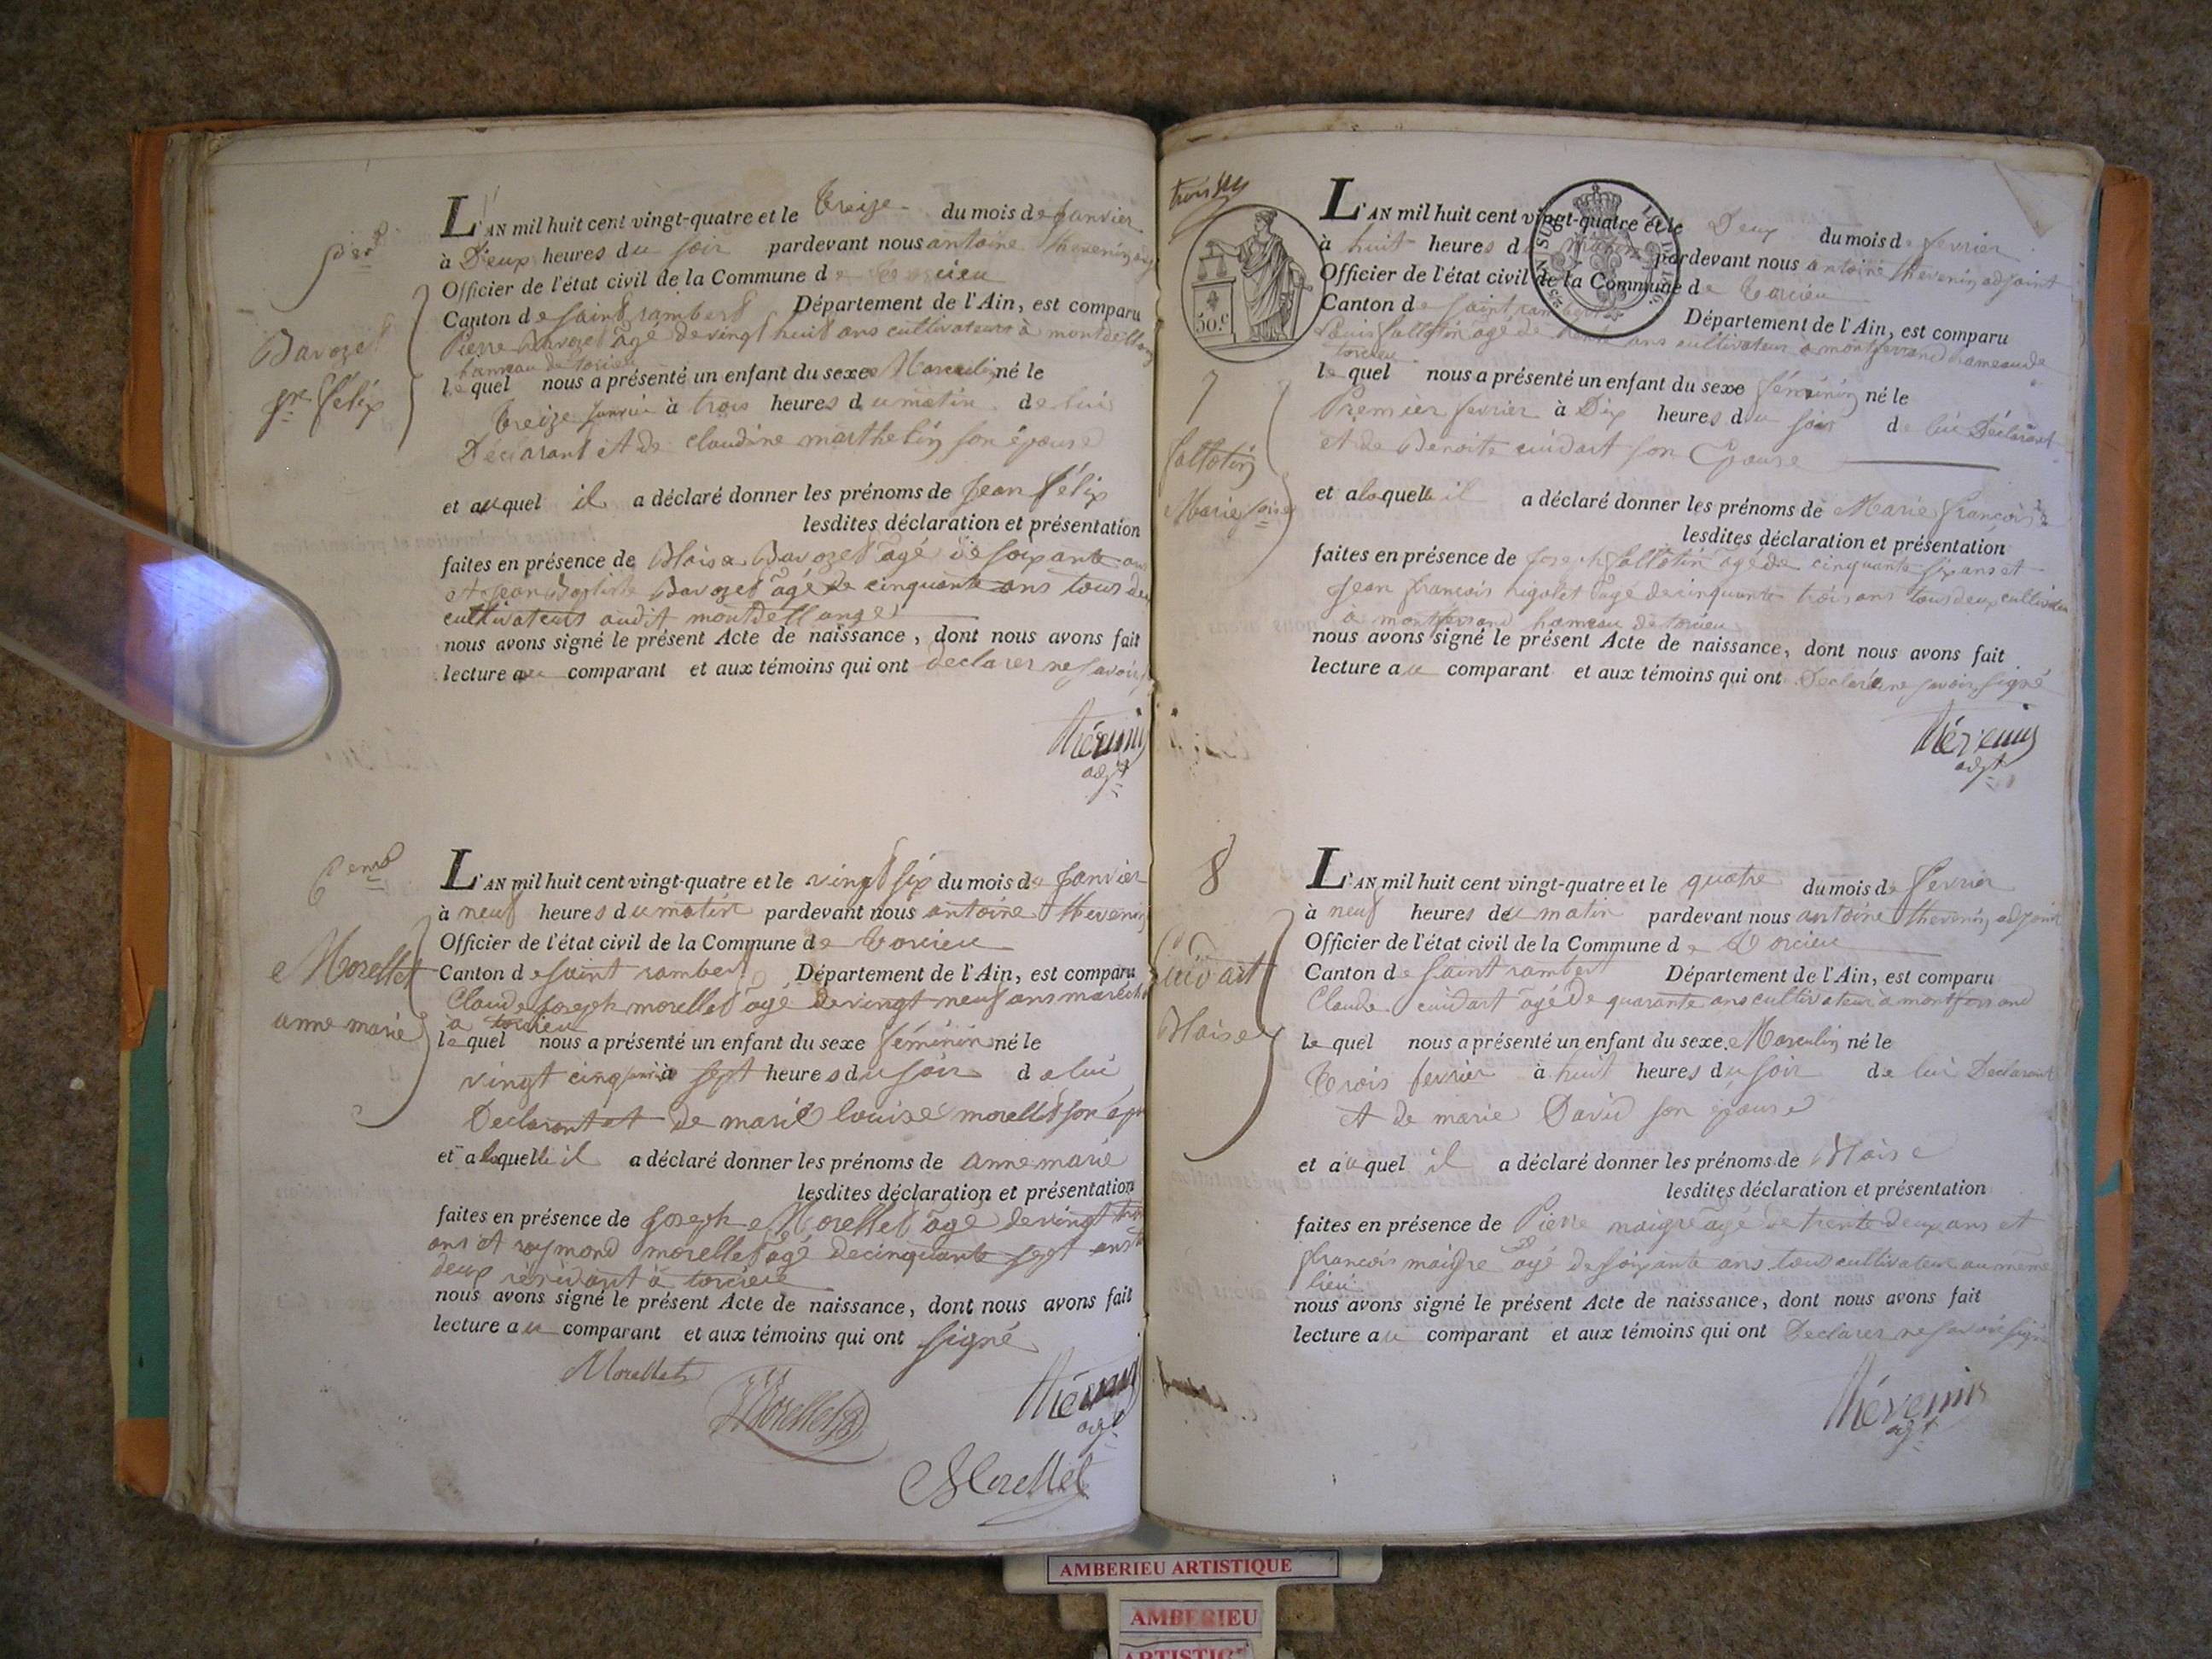 5em
Bavozet
jn félix
L'AN mil huit cent vingt-quatre et le treize du mois de janvier
à Deux heures du soir pardevant nous antoine thevenin adj
Officier de l'état civil de la Commune de torcieu
Canton de saint rambert Département de l'Ain, est comparu
Pierre Bavozet âgé de vingt huit ans cultivateur à
hameau de torcieu
lequel nous a présenté un enfant du sexe Masculin né le
treize janvier à trois heures du matin de lui
Déclarant et de claudine marthelin son épouse
et auquel il a déclaré donner les prénoms de jean félix
lesdites déclaration et présentation
faites en présence de Blaise Bavozet âgé de soixante ans
et jean Baptiste Bavozet âgé de cinquante ans tous deux
cultivateurs audit
nous avons signé le présent Acte de naissance, dont nous avons fait
lecture au comparant et aux témoins qui ont declarer ne savoir
thévenin
adjt
6eme
Morellet
anne marie
L'AN mil huit cent vingt-quatre et le vingt six du mois de janvier
à neuf heures du matin pardevant nous antoine thevenin
Officier de l'état civil de la Commune de torcieu
Canton de saint rambert Département de l'Ain, est comparu
Claude joseph morellet âgé de vingt neuf ans
à torcieu
lequel nous a présenté un enfant du sexe féminin né le
vingt cinq à sept heures du soir de lui
Declarant et de marie louise morellet son
et a laquelle il a déclaré donner les prénoms de anne marie
lesdites déclaration et présentation
faites en présence de joseph Morellet âgé de vingt
ans et raymond morellet âgé de cinquante sept ans
deux résidant à torcieu
nous avons signé le présent Acte de naissance, dont nous avons fait
lecture au comparant et aux témoins qui ont signé
Morellet
Morellet
thévenin
adjt
Morellet
50.c
7
Sallotin
Marie
L'AN mil huit cent vingt-quatre et le Deux du mois de fevrier
à huit heures du matin pardevant nous antoine thevenin adjoint
Officier de l'état civil de la Commune de torcieu
Canton de saint rambert Département de l'Ain, est comparu
Louis Sallotin âgé de trente ans cultivateur à montferrand hameau de
torcieu
lequel nous a présenté un enfant du sexe féminin né le
Premier fevrier à Dix heures du soir de lui Déclarant
et de Benoite cuidart son Epouse
et a laquelle il a déclaré donner les prénoms de Marie françoise
lesdites déclaration et présentation
faites en présence de joseph Sallotin âgé de cinquante six ans et
jean françois rigolet âgé de cinquante trois ans tous deux cultivateur
à montferrand hameau de torcieu
nous avons signé le présent Acte de naissance, dont nous avons fait
lecture au comparant et aux témoins qui ont Declaré ne savoir signé
thévenin
adjt
8
Cuidart
Blaise
L'AN mil huit cent vingt-quatre et le quatre du mois de fevrier
à neuf heures du matin pardevant nous antoine thevenin adjoint
Officier de l'état civil de la Commune de torcieu
Canton de saint rambert Département de l'Ain, est comparu
Claude cuidart âgé de quarante ans cultivateur à montferrand
lequel nous a présenté un enfant du sexe Masculin né le
trois fevrier à huit heures du soir de lui Declarant
et de marie David son épouse
et auquel il a déclaré donner les prénoms de Blaise
lesdites déclaration et présentation
faites en présence de Pierre maigre âgé de trente deux ans et
françois maigre âgé de soixante ans tous cultivateur au même
lieu
nous avons signé le présent Acte de naissance, dont nous avons fait
lecture au comparant et aux témoins qui ont Declarer ne savoir signé
thévenin
adjt
AMBERIEU ARTISTIQUE
AMBERIEU
ARTISTIQ